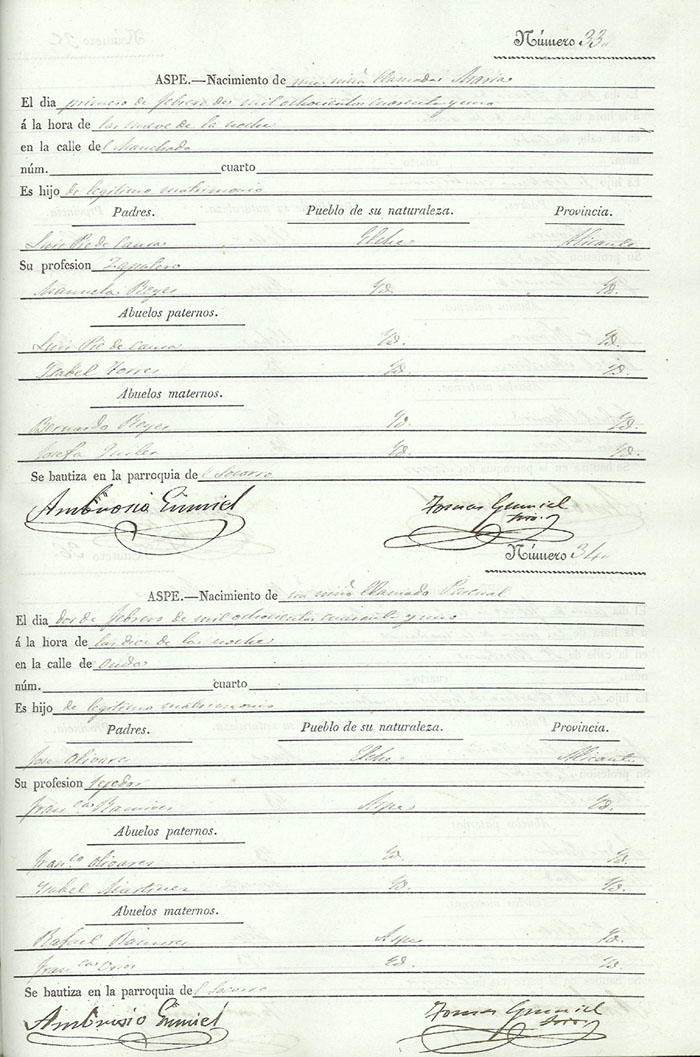 Número 33.
ASPE.—Nacimiento de una niña llamada Maria
El dia primero de febrero de mil ochocientos cuarenta y uno
á la hora de las nueve de la noche
en la calle del
núm. cuarto
Es hijo de legitimo matrimonio
Padres. Pueblo de su naturaleza. Provincia.
Luis Pie de Causa Elche Alicante
Su profesion Zapatero
Manuela Reyes Yd. Yd.
Abuelos paternos.
Luis Pie de Causa Yd. Yd.
Ysabel Torres Yd. Yd.
Abuelos maternos.
Bernardo Reyes Yd. Yd.
Josefa Yd. Yd.
Se bautiza en la parroquia del Socorro
Ambrosio Gumiel Tomas Gumiel
Srio.
Número 34.
ASPE.—Nacimiento de un niño llamado Pascual
El dia dos de febrero de mil ochocientos cuarenta y uno
á la hora de las doce de la noche
en la calle de
núm. cuarto
Es hijo de legitimo matrimonio
Padres. Pueblo de su naturaleza. Provincia.
Jose Olivares Elche Alicante
Su profesion tejedor
Fran.ca Ramires Aspe Yd.
Abuelos paternos.
Fran.co Olivares Yd. Yd.
Ysabel Martinez Yd. Yd.
Abuelos maternos.
Rafael Ramires Aspe Yd.
Fran.ca Yd. Yd.
Se bautiza en la parroquia del Socorro
Ambrosio Gumiel Tomas Gumiel
Srio.